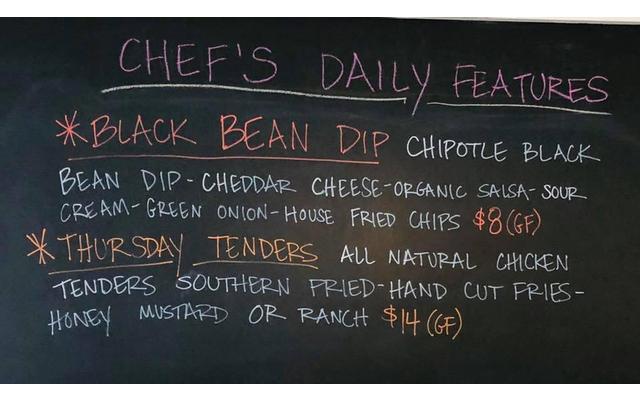 CHEF'S DAILY FEATURES
*BLACK BEAN DIP CHIPOTLE BLACK
BEAN DIP-CHEDDAR CHEESE-ORGANIC SALSA-SOUR
CREAM-GREEN ONION-HOUSE FRIED CHIPS $8(GF)
*THURSDAY TENDERS ALL NATURAL CHICKEN
TENDERS SOUTHERN FRIED-HAND CUT FRIES-
HONEY MUSTARD OR RANCH $14(GF)